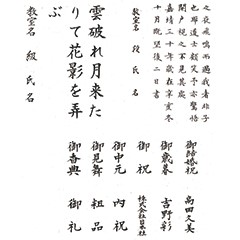 之夜飛鳴而過我者非子
也耶道士顧笑予亦驚悟
開戸視之不見其處
嘉靖三十年歳在辛亥冬
十月既望後二日書
教室名 段 氏名
雲破れ月来た
りて花影を弄
ぶ
教室名 級 氏名
御結婚祝 高田久美
御歳暮 吉野彩
御祝 株式会社
御中元 内祝
御見舞 粗品
御香典 御礼